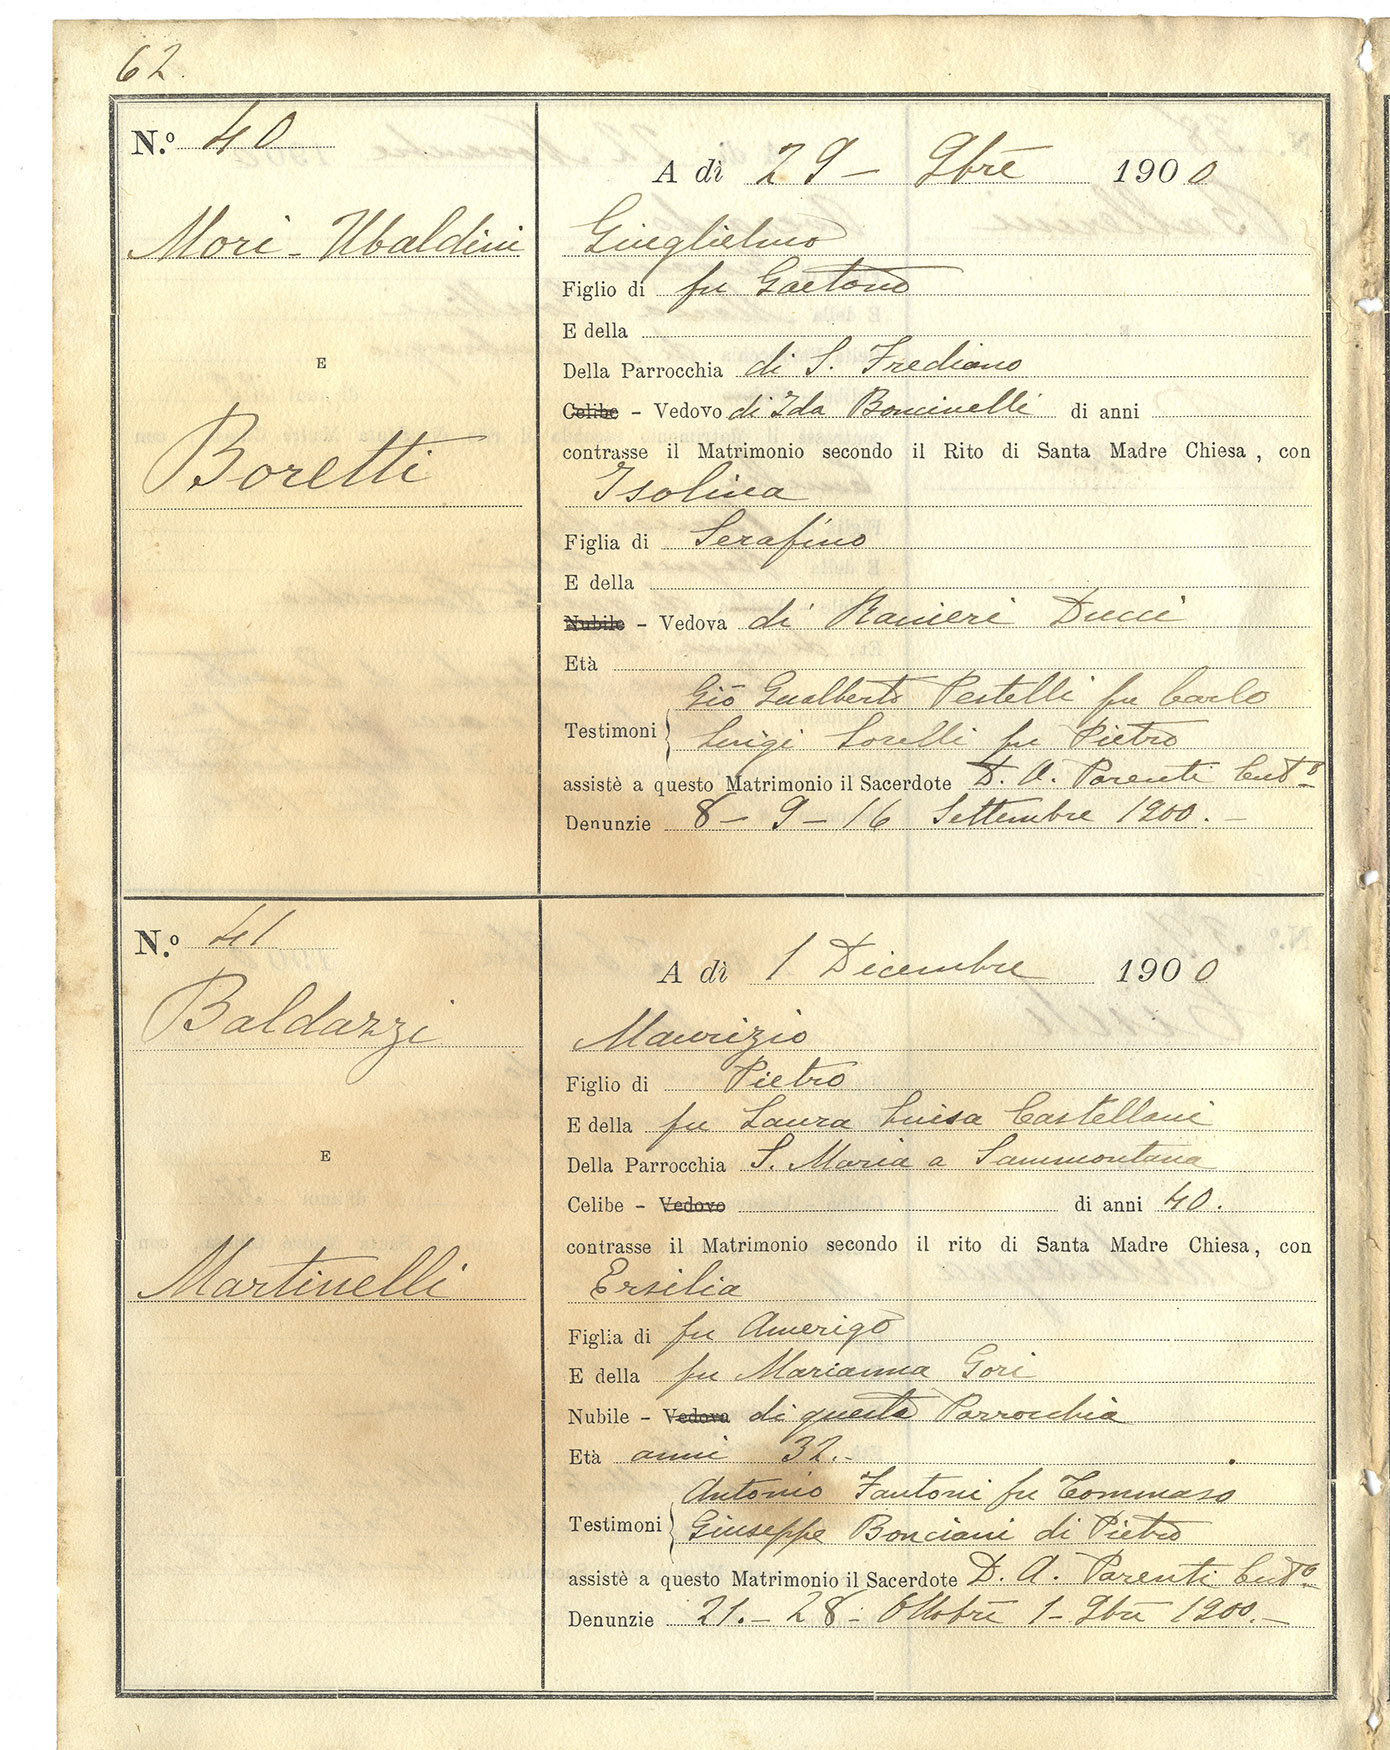 62.
N.º 40
A dì 29 - 9bre 1900
Mori - Ubaldini
Giuglielmo
Figlio di fu Gaetano
E della
E
Della Parrocchia di S. Frediano
Celibe - Vedovo di Ida Boncinelli di anni
contrasse il Matrimonio secondo il Rito di Santa Madre Chiesa, con
Boretti
Isolina
Figlia di Serafino
E della
Nubile - Vedova di Ranieri Ducci
Età
Gio Gualberto Pestelli fu Carlo
Testimoni
Luigi Lorelli fu Pietro
assistè a questo Matrimonio il Sacerdote D. A. Parenti
Denunzie 8 - 9 - 16 Settembre 1900. -
N.º 41
A dì 1 Dicembre 1900
Baldazzi
Maurizio
Figlio di Pietro
E della fu Laura Luisa Castellani
E
Della Parrocchia S. Maria a Sammontana
Celibe - Vedovo di anni 40.
contrasse il Matrimonio secondo il rito di Santa Madre Chiesa, con
Martinelli
Ersilia
Figlia di fu Amerigo
E della fu Marianna Gori
Nubile - Vedova di questa Parrochia
Età anni 32. -
Antonio Fantoni fu Tommaso
Testimoni
Giuseppe Bonciani di Pietro
assistè a questo Matrimonio il Sacerdote D. A. Parenti
Denunzie 21. - 28 - Ottobre 1 - 9bre 1900. -